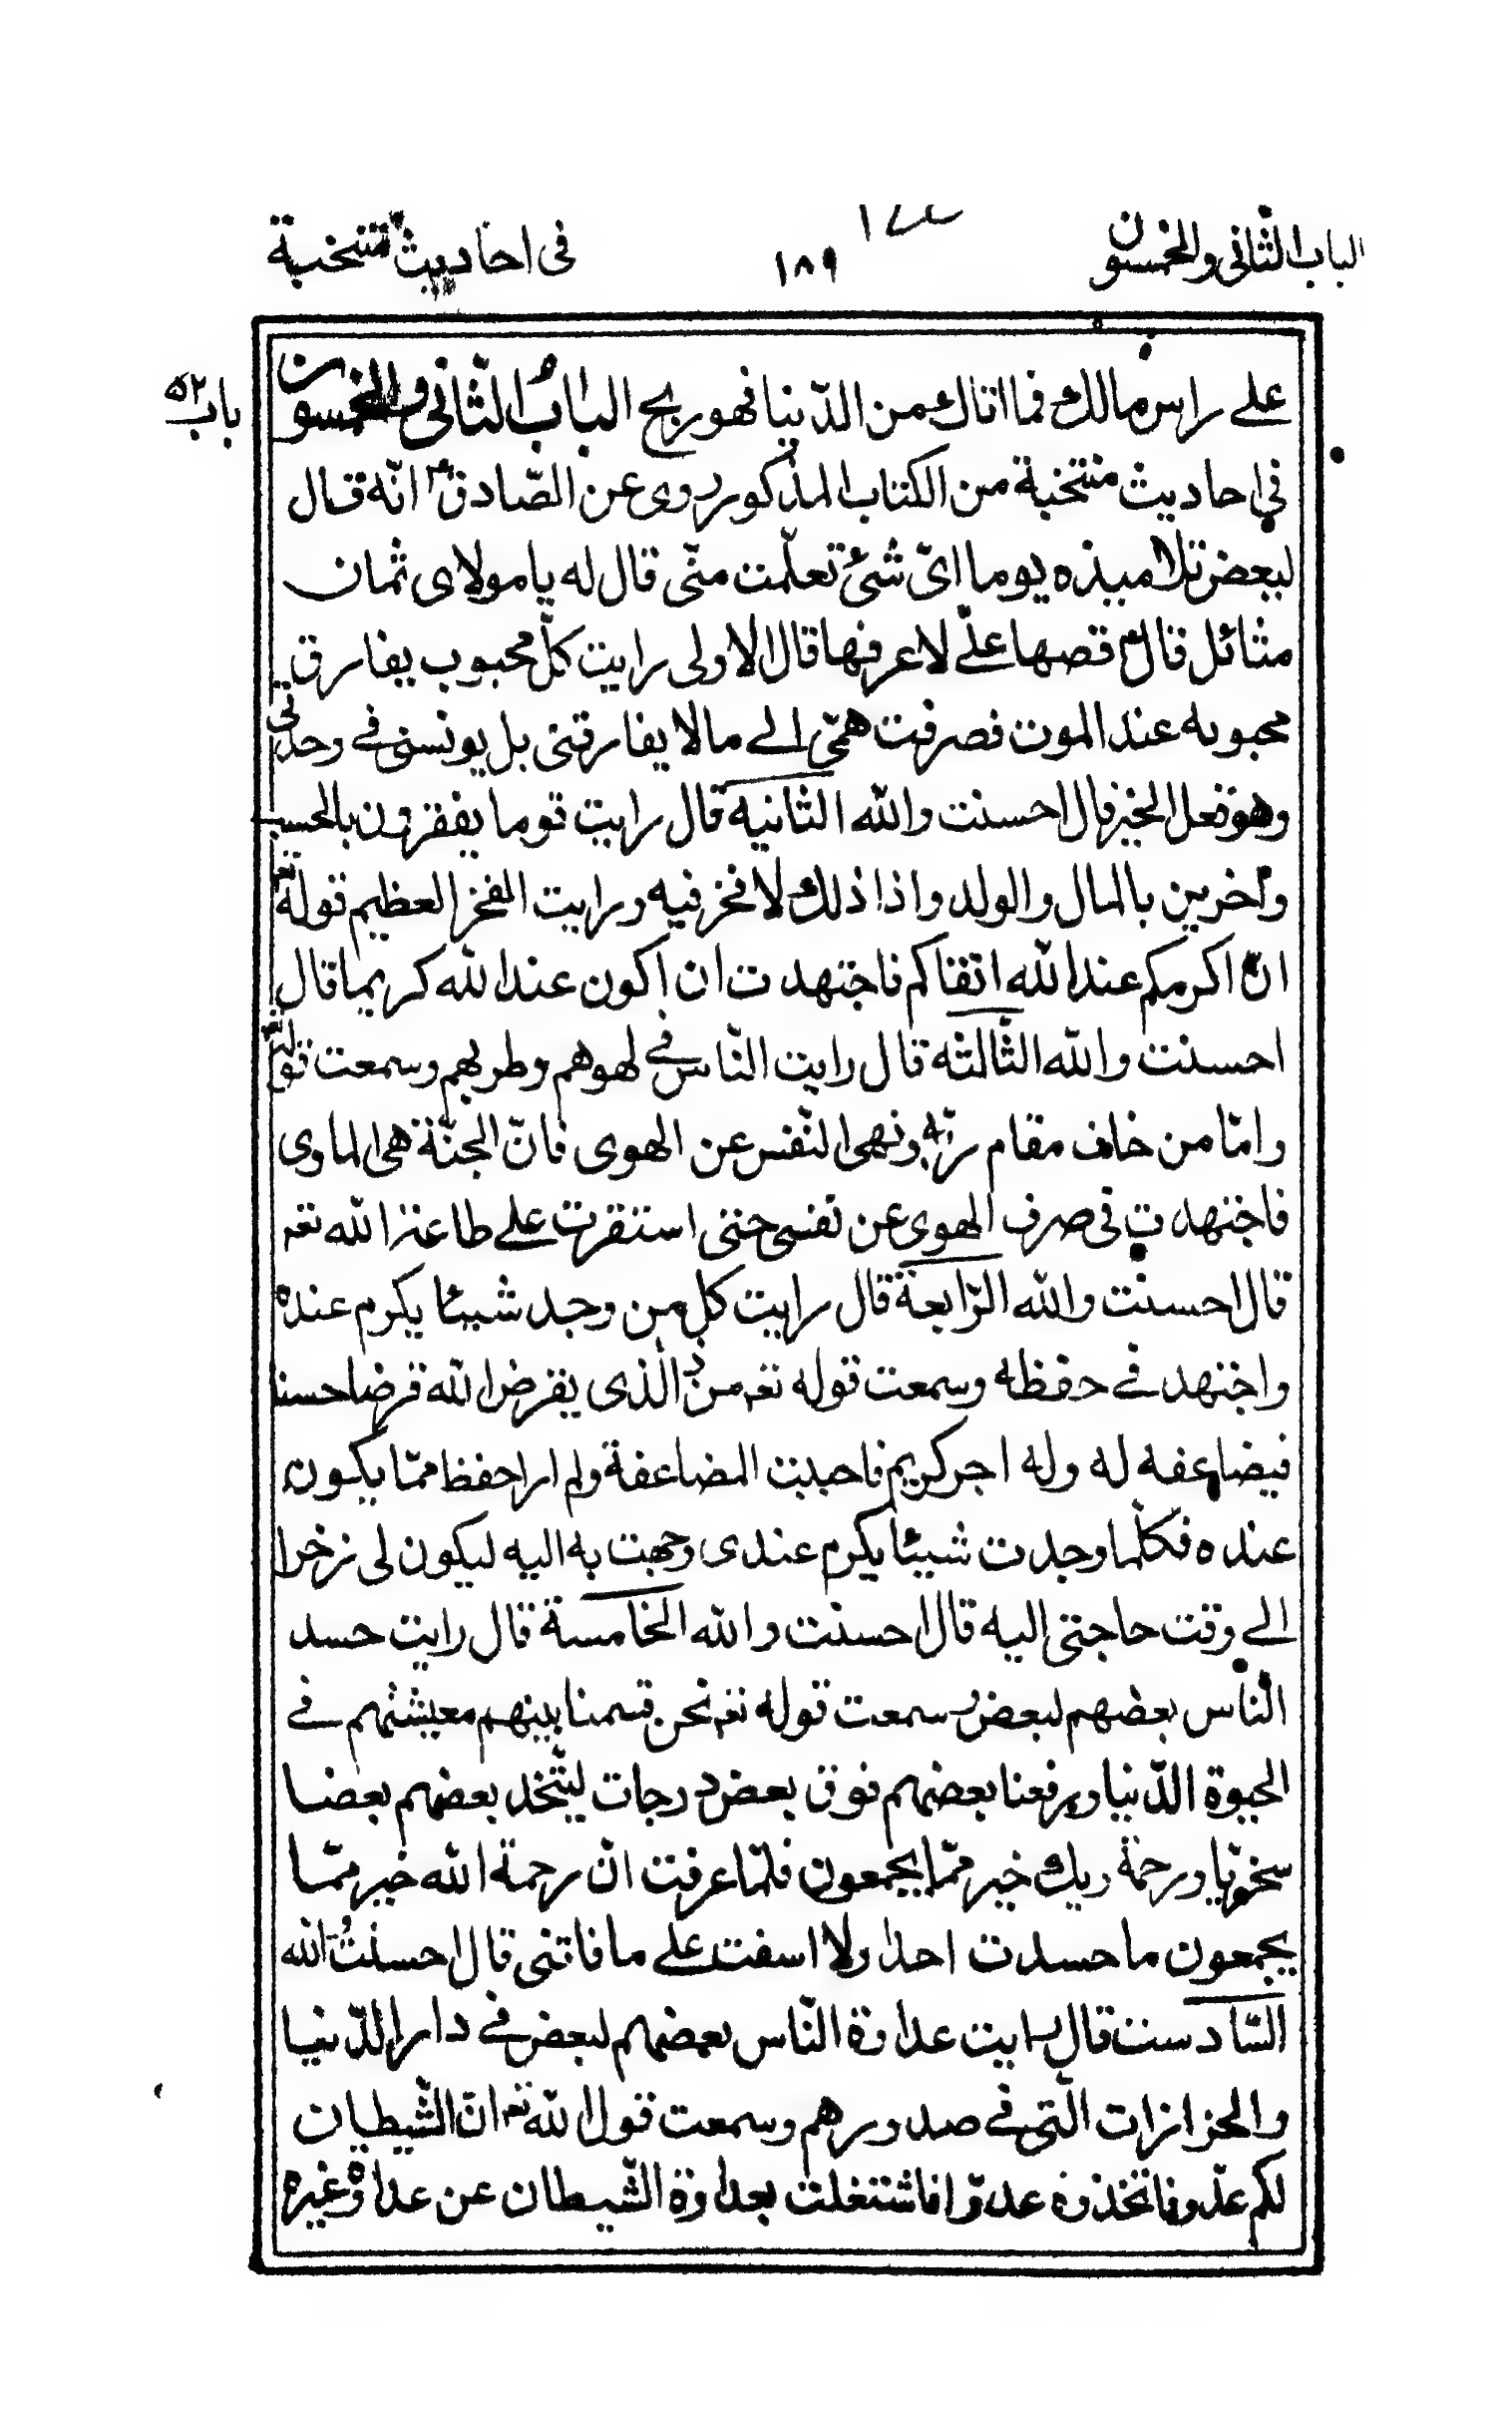 الباب الثانى والخمسون ١٨٩ فى احاديث منتخبة
باب ۵۲
على راس مالك فما اتاك من الدّنيا فهو ربح الباب الثّانى والخمسون
فى احاديث منتخبة من الكتاب المذكور روى عن الصّادق انّه قال
لبعض تلاميذه يوما اىّ شئ تعلّمت منّى قال له يا مولاى ثمان
مثائل قال قصها علىّ لاعرفها قال الاولى رايت كلّ محبوب يفارق
محبوبه عند الموت فصرفت همّى الى ما لا يفارقنى بل يونسنى فى وحدتى
وهو فعل الخير قال احسنت والله الثانية قال رايت قوما يفقرون بالحسب
وآخرين بالمال والولد واذا ذلك لا فخر فيه ورايت الفخر العظيم قوله تعه
انّ اكرمكم عند الله اتقاكم فاجتهدت ان اكون عند الله كريما قال
احسنت والله الثّالثه قال رايت النّاس فى لهوهم وطربهم وسمعت قوله تعه
وامّا من خاف مقام ربّه ونهى النّفس عن الهوى فانّ الجنّة هى الماوى
فاجتهدت فى صرف الهوى عن نفسى حتى استقرت على طاعة الله تعه
قال احسنت والله الرّابعة قال رايت كل من وجد شيئا يكرم عنده
واجتهد فى حفظه وسمعت قوله تعه من ذ الّذى يقرض الله قرضا حسنا
فيضاعفه له وله اجر كريم فاحببت المضاعفة ولم ار احفظ ممّا يكون
عنده فكلّما وجدت شيئا يكرم عندى وجهت به اليه ليكون لى زخرا
الى وقت حاجتى اليه قال احسنت والله الخامسة قال رايت حسد
النّاس بعضهم لبعض وسمعت قوله تعه نحن قسمنا بينهم معيشتهم فى
الحيوة الدّنيا ورفعنا بعضهم فوق بعض درجات ليتّخد بعضهم بعضا
سخريّا ورحمة ربك خير ممّا يجمعون فلمّا عرفت انّ رحمة الله خير ممّا
يجمعون ما حسدت احدا ولا اسفت على ما فاتنى قال احسنت والله
السّادسة قال رايت عداوة النّاس بعضهم لبعض فى دار الدّنيا
والحزازات الّتى فى صدورهم وسمعت قول الله تعه انّ الشّيطان
لكم عدّو فاتخذوه عدوّا فاشتغلت بعداوة الشّيطان عن عداوة غيره